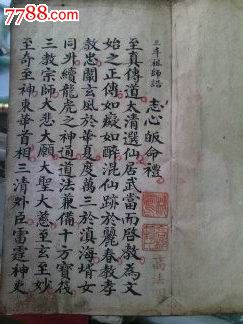 7788.com
三丰祖師誥
志心皈命禮
至真傳道太清選仙居武當而啓教為文
始之正傳如癡如醉混仙跡於麗春教孝
教忠闡玄風於華夏度萬三於滇海壻女
同升續龍虎之神通道法兼備十方寶筏
三教宗師大悲大願大聖大慈至玄至妙
至奇至神東華首相三清外臣雷霆神吏
高法